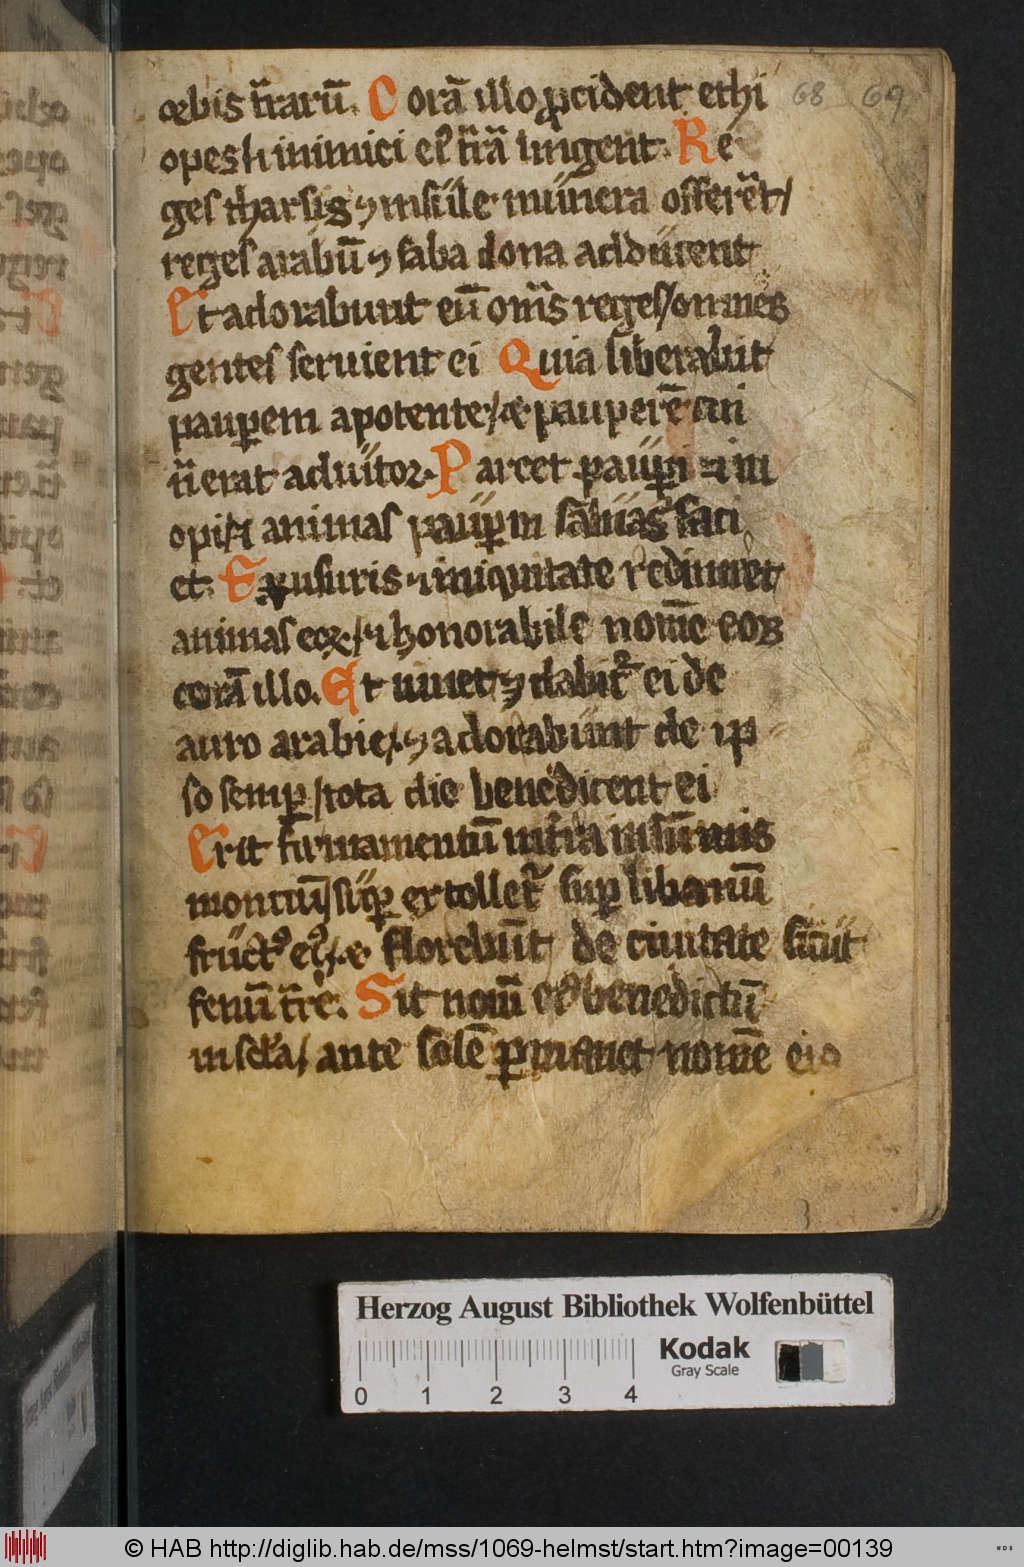 orbis t̄rarū. Corā illo ꝓcident ethi
68 69
opes ⁊ inimici eiꝰ t̄rā lingent. Re
ges tharsis ⁊ insule munera offerēt /
reges arabū ⁊ saba dona adducent
Et adorabunt eū om̄s reges / omnes
gentes seruient ei Quia liberabit
pauꝑem a potente / ⁊ pauperē cui
n̄ erat adiutor. Parcet pauꝑi ⁊ in
opi ⁊ animas pauꝑum saluas faci
et. Ex usuris ⁊ iniquitate redimet
animas eoꝝ / ⁊ honorabile nomē eoꝝ
corā illo. Et uiuet ⁊ dabit᷑ ei de
auro arabie / ⁊ adorabunt de ip
so semꝑ / tota die benedicent ei
Erit firmamentū in t̄ra in sūmis
montiū / suꝑ extollet᷑ suꝑ libanū
fructꝰ eiꝰ / ⁊ florebūt de ciuitate sicut
fenū t̄re. Sit nom̄ eiꝰ benedictū
in sc̄la / ante solē ꝑmanet nomē eiꝰ
Herzog August Bibliothek Wolfenbüttel
Kodak
Gray Scale
0 1 2 3 4
© HAB http://diglib.hab.de/mss/1069-helmst/start.htm?image=00139